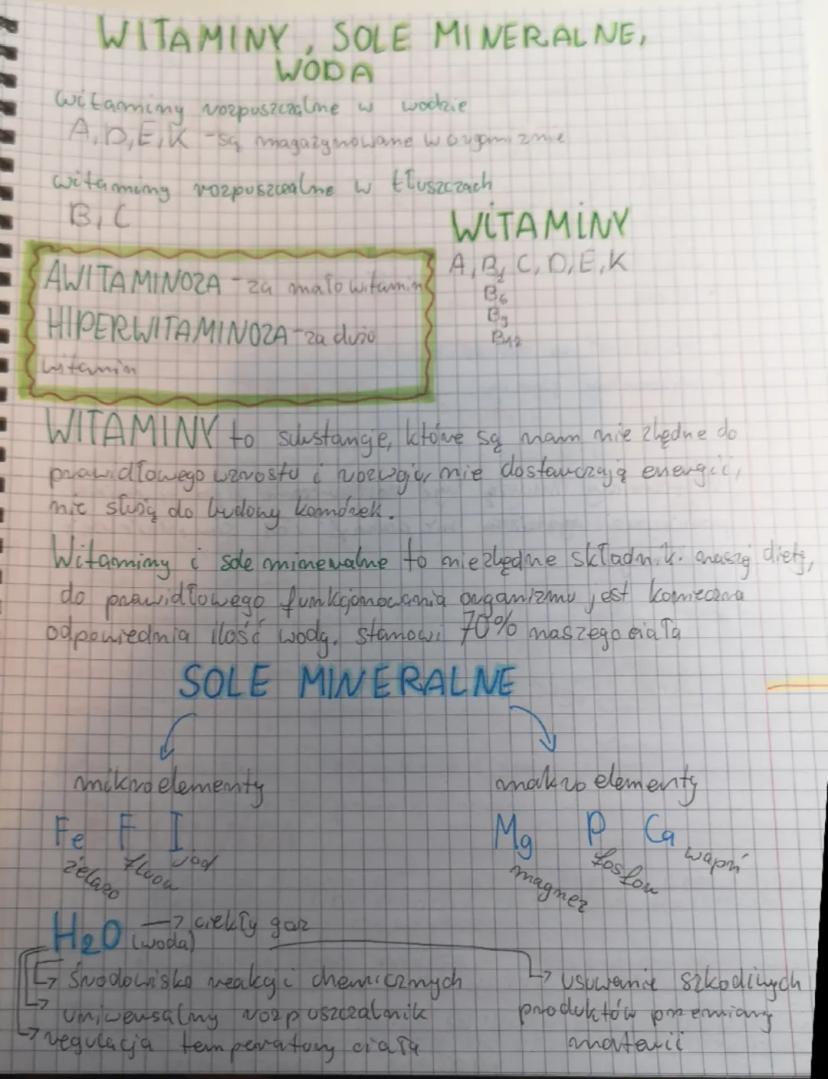 WITAMINY, SOLE MINERALNE,
WODA
witaminy rozpuszczalne w wodzie
A, D, E, K - są magazynowane w organizmie
witaminy rozpuszczalne w tłuszczach
B, C
WITAMINY
A, B₂, C, D, E, K
B₆
B₉
B₁₂
AWITAMINOZA - za mało witamin
HIPERWITAMINOZA - za dużo
witamin
WITAMINY to substancje, które są nam nie zbędne do
prawidłowego wzrostu i rozwoju, nie dostarczają energii,
nie służą do budowy komórek.
Witaminy i sole mineralne to niezbędne składnik. naszej diety,
do prawidłowego funkcjonowania organizmu jest konieczna
odpowiednia ilość wody. stanowi 70% naszego ciała
SOLE MINERALNE
mikroelementy
makro elementy
Fe F I
żelazo fluor jod
Mg P Ca
magnez fosfor wapń
H2O (woda) → ciekły gaz
→ środowisko reakcji chemicznych
→ uniwersalny rozpuszczalnik
→ regulacja temperatury ciała
→ usuwanie szkodliwych
produktów przemiany
materii